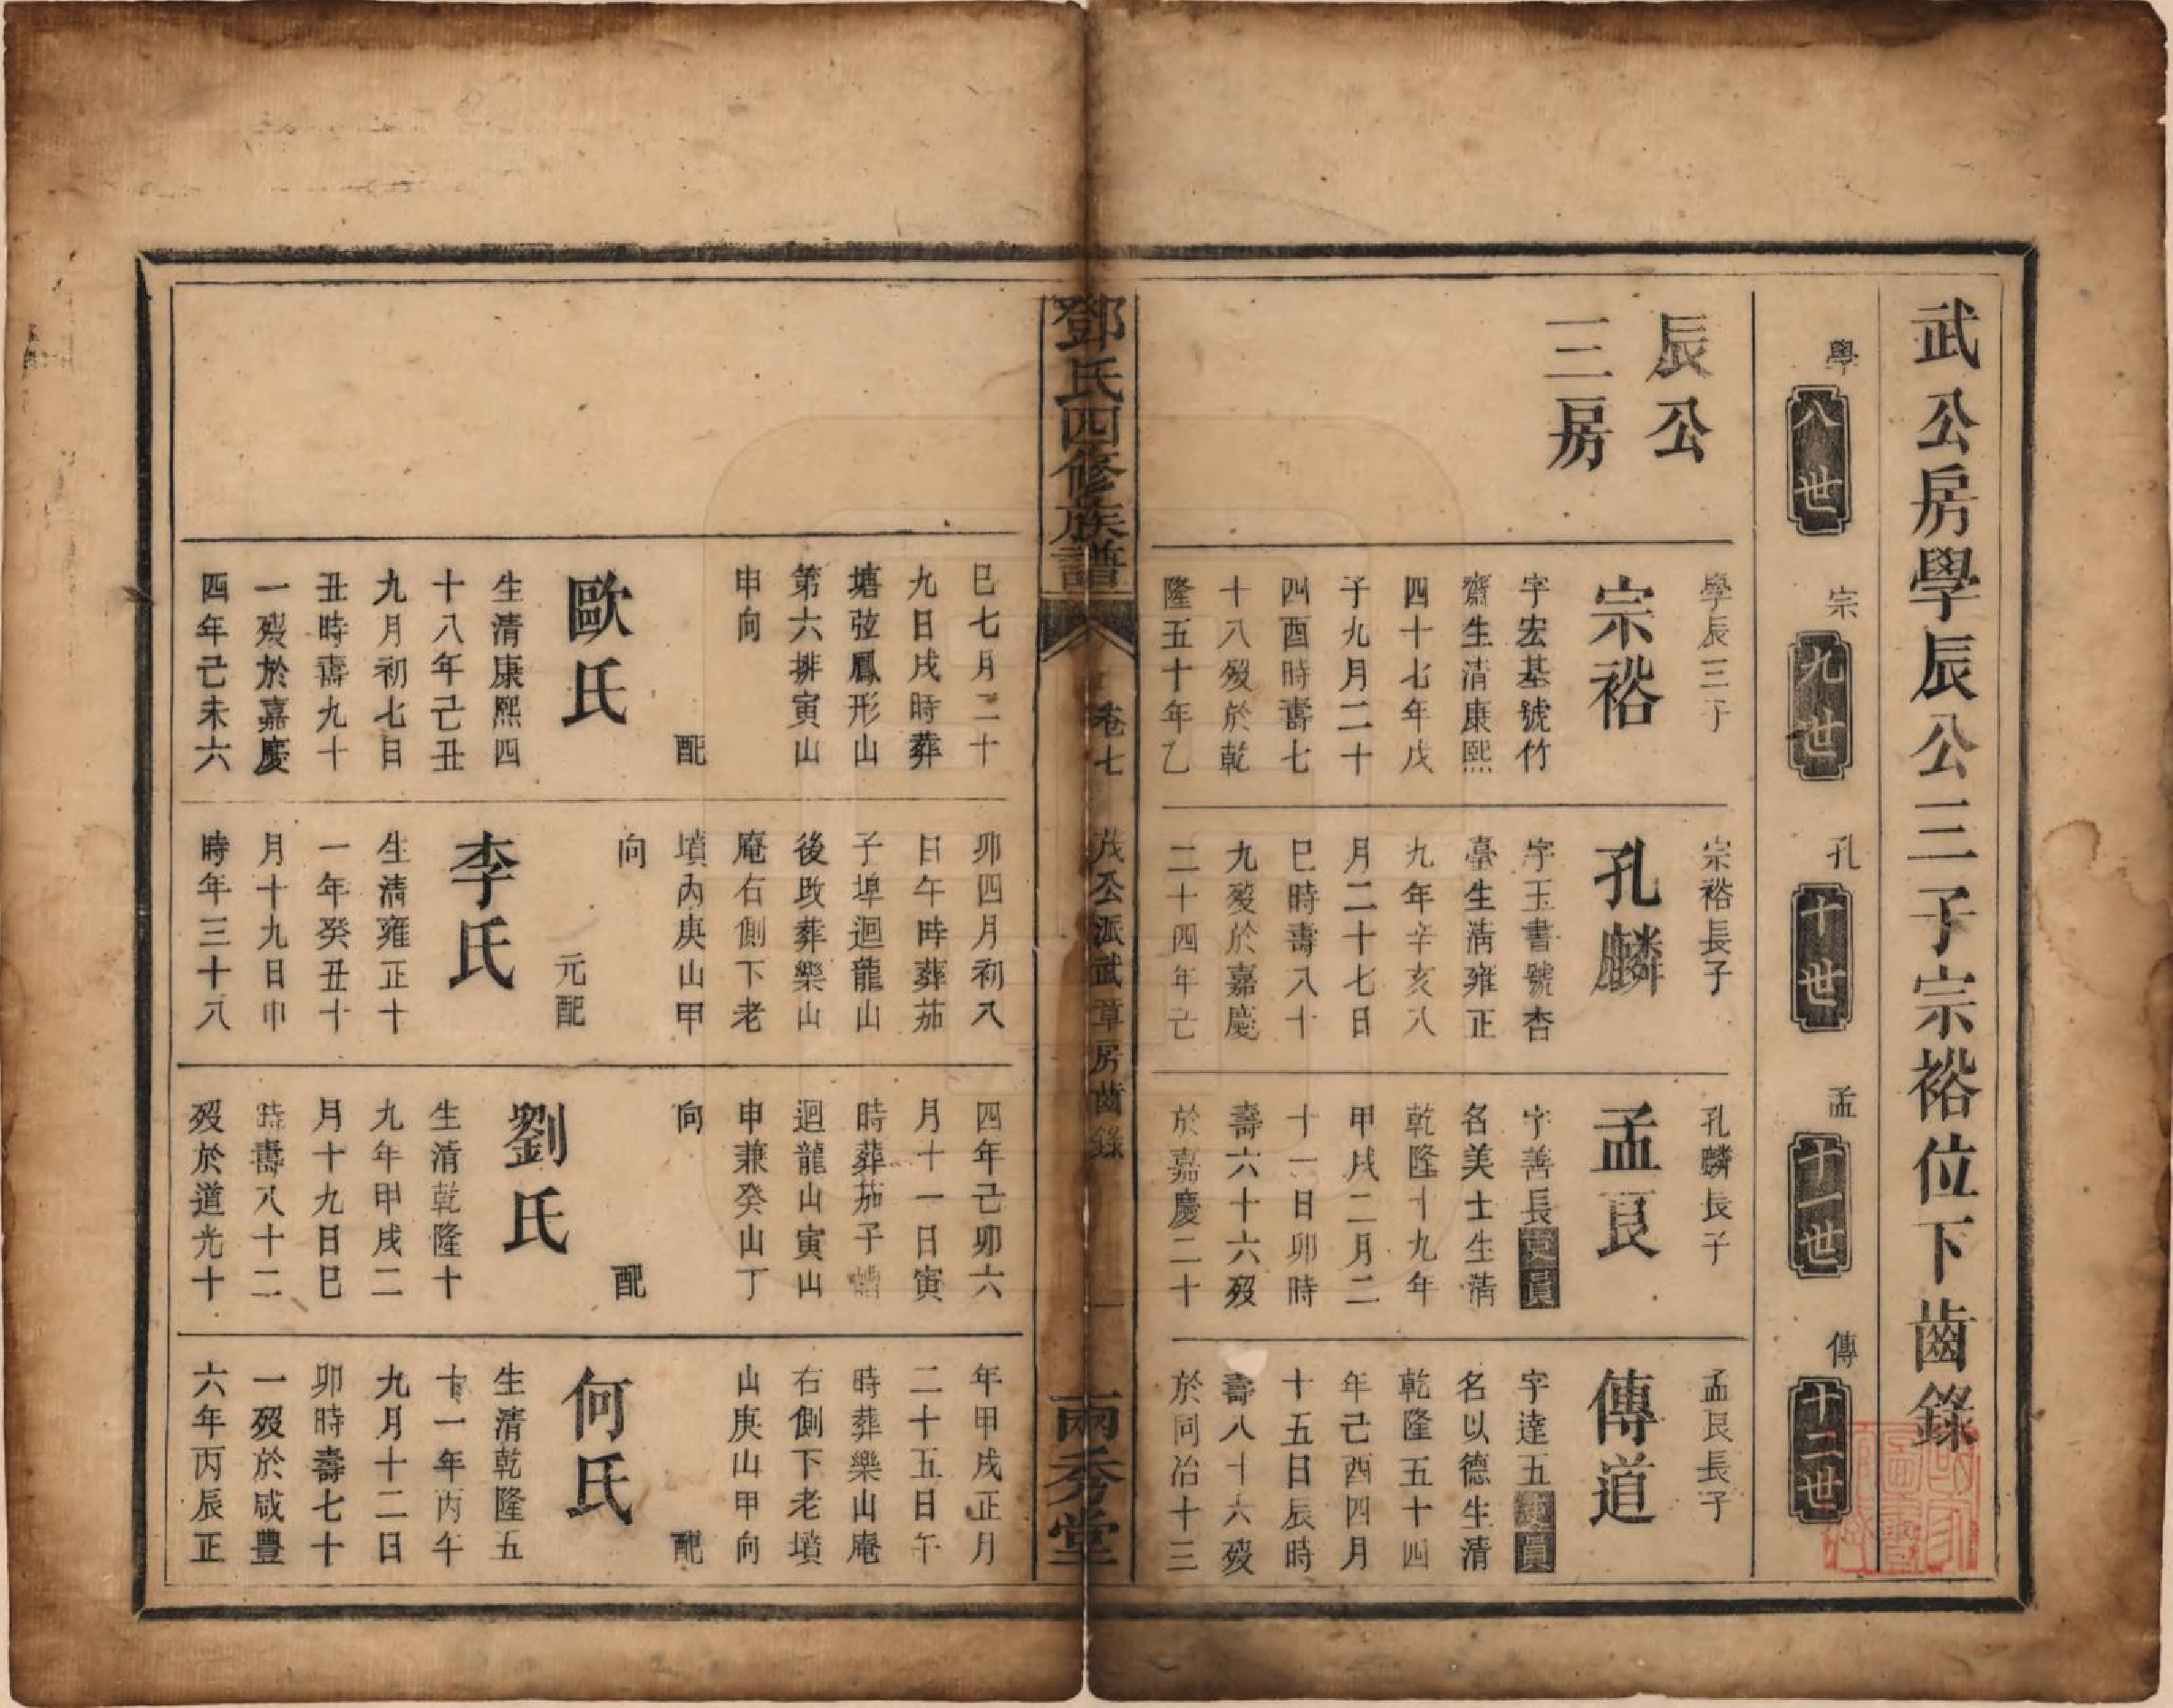 武公房學辰公三子宗裕位下齒錄
學
八世
宗
九世
孔
十世
孟
十一世
傳
十二世
辰公
三房
學辰三子
宗裕
字宏基號竹
齋生清康熙
四十七年戊
子九月二十
四酉時壽七
十八歿於乾
隆五十年乙
宗裕長子
孔麟
字玉書號杏
臺生清雍正
九年辛亥八
月二十七日
巳時壽八十
九歿於嘉慶
二十四年己
孔麟長子
孟良
字善長貢員
名美士生清
乾隆十九年
甲戌二月二
十一日卯時
壽六十六歿
於嘉慶二十
孟良長子
傳道
字達五貢員
名以德生清
乾隆五十四
年己酉四月
十五日辰時
壽八十六歿
於同治十三
鄧氏四修族譜
卷七
茂公派武章房齒錄
一
兩秀堂
巳七月二十
九日戌時葬
塘弦鳳形山
第六排寅山
申向
配
歐氏
生清康熙四
十八年己丑
九月初七日
丑時壽九十
一歿於嘉慶
四年己未六
卯四月初八
日午時葬茄
子埠迴龍山
後改葬樂山
庵右側下老
墳內庚山甲
向
元配
李氏
生清雍正十
一年癸丑十
月十九日巾
時年三十八
四年己卯六
月十一日寅
時葬茄子埠
迴龍山寅山
申兼癸山丁
向
配
劉氏
生清乾隆十
九年甲戌二
月十九日巳
時壽八十二
歿於道光十
年甲戌正月
二十五日午
時葬樂山庵
右側下老墳
山庚山甲向
配
何氏
生清乾隆五
十一年丙午
九月十二日
卯時壽七十
一歿於咸豐
六年丙辰正